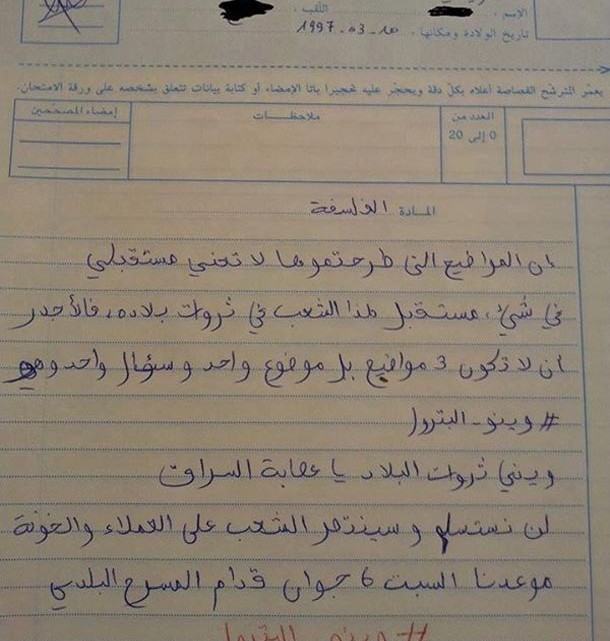 الاسم :
اللقب :
تاريخ الولادة ومكانها : 10-03-1997
يعمّر المترشح القصاصة أعلاه بكلّ دقة ويحجّر عليه تحجيرا باتا الإمضاء أو كتابة بيانات تتعلق بشخصه على ورقة الامتحان.
العدد من 0 إلى 20
ملاحظات
إمضاء المصححين
المادة الفلسفة
إن المواضيع التي طرحتموها لا تعني مستقبلي
في شيء، مستقبل هذا الشعب في ثروات بلاده، فالأجدر
أن لا تكون 3 مواضيع بل موضوع واحد و سؤال واحد وهو
# وينو-البترول
ويني ثروات البلاد يا عصابة السراق
لن نستسلم و سينتصر الشعب على العملاء والخونة
موعدنا السبت 6 جوان قدام المسرح البلدي
# وينو البترول